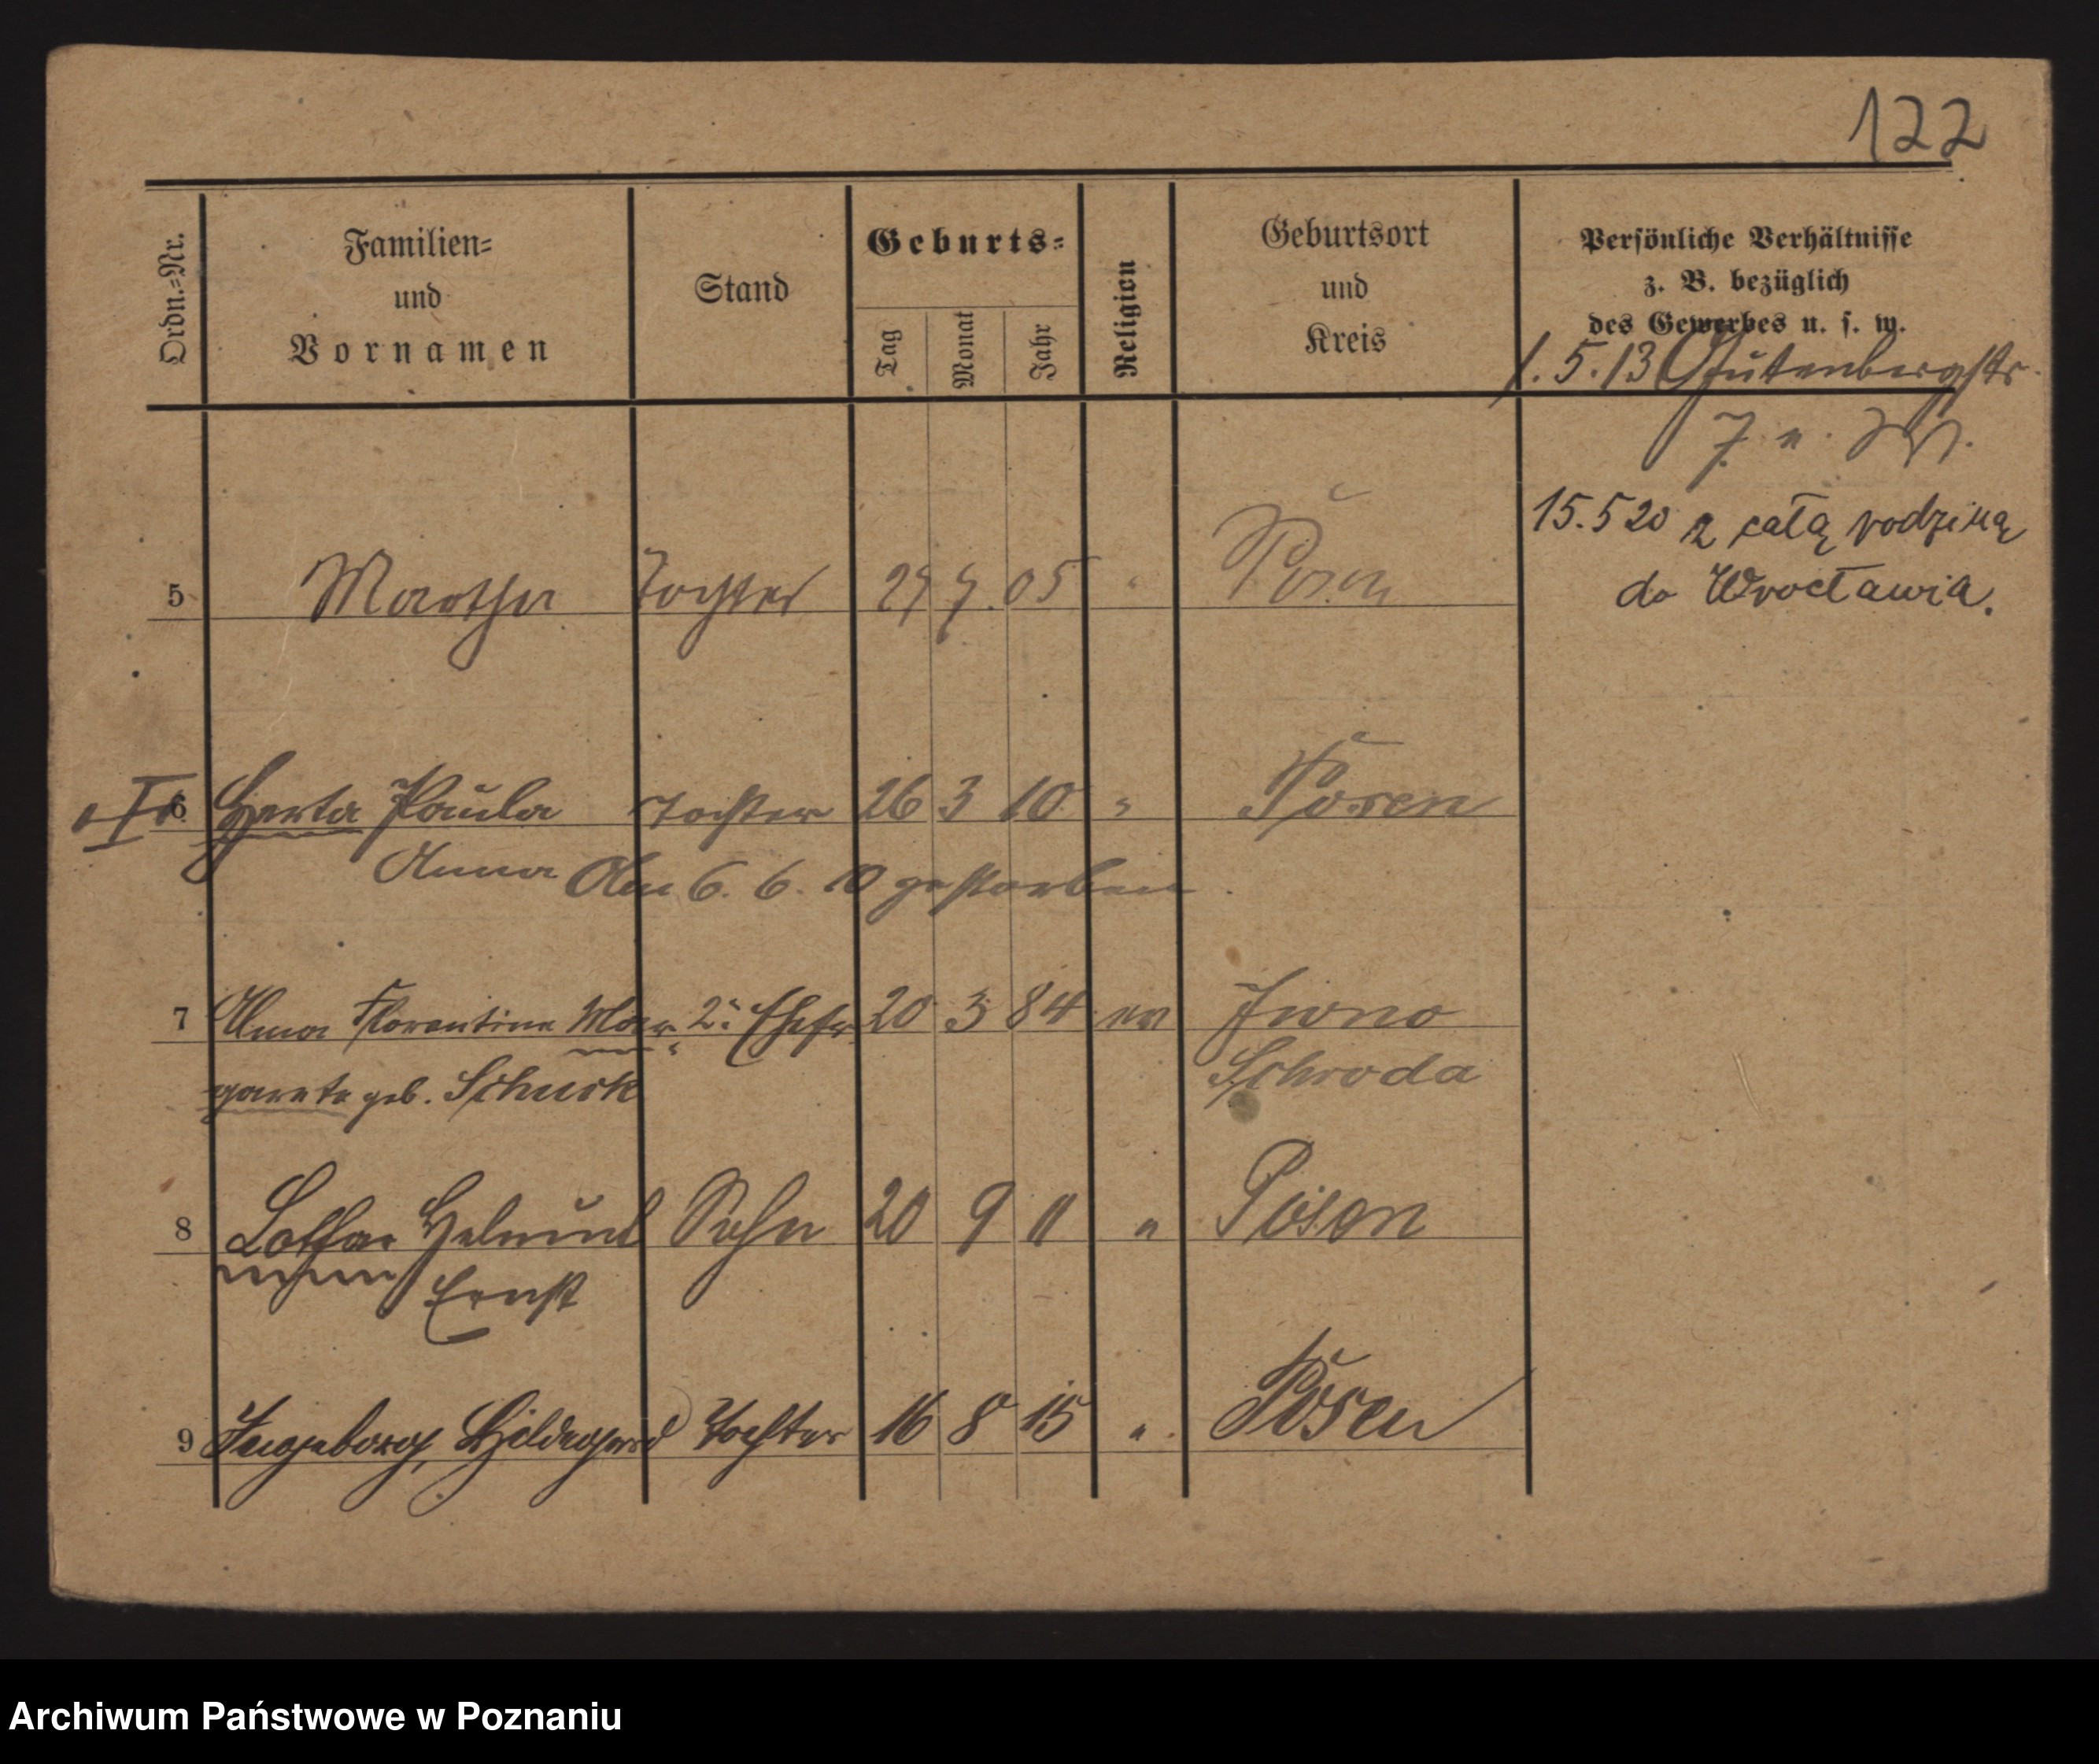 122
Ordn.=Nr.
Familien=
und
Vornamen
Stand
Geburts=
Tag
Monat
Jahr
Religion
Geburtsort
und
Kreis
Persönliche Verhältnisse
z. B. bezüglich
des Gewerbes u. s. w.
1.5.13 Gutenbergstr.
15.5 20 z całą rodziną
do Wrocławia.
5 Martha Tochter 05 " Posen
6 Herta Paula Tochter 26 3 10 " Posen
Anna Am 6. 6. 10 gestorben
7 Alma Florentine Mar= 2. Ehefr 20 3 84 ev Iwno
garete geb. Schuck Schroda
8 Lothar Helmut Sohn 20 9 11 " Posen
Ernst
9 Ingeborg, Hildegard Tochter 16 8 15 " Posen
Archiwum Państwowe w Poznaniu